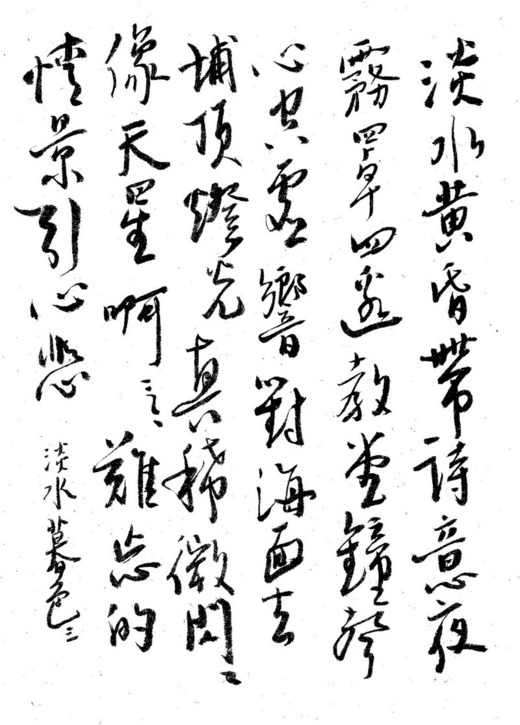 淡水黄昏帶詩意夜
霧罩四邊教堂鐘聲
心空虛響對海面去
埔頂燈光真稀微閃〻
像天星啊〻〻難忘的
情景引心悲
淡水暮色三